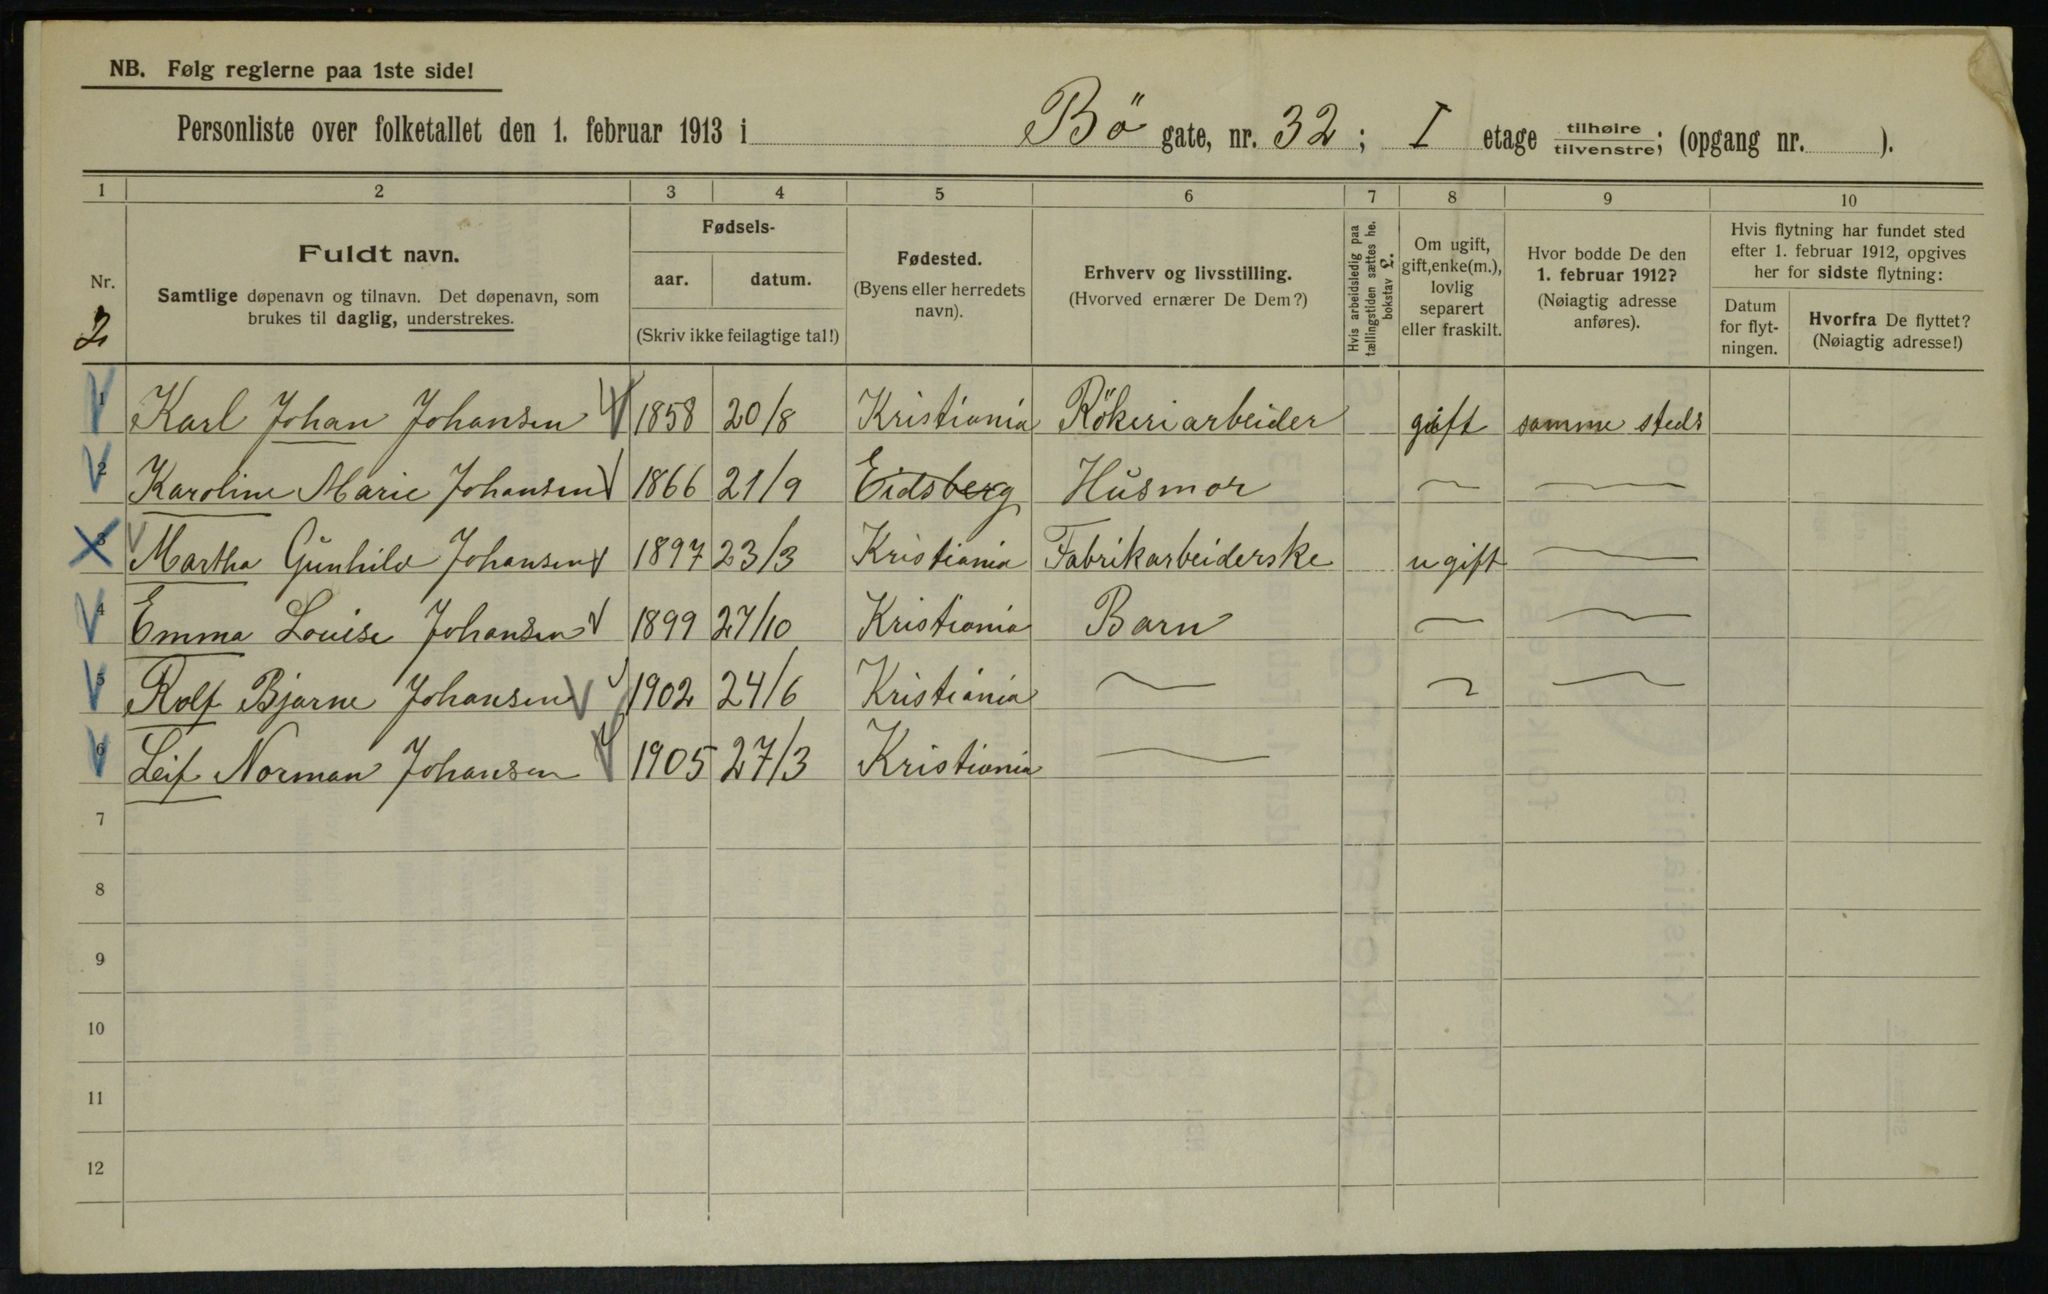 NB. Følg reglerne paa 1ste side!
Personliste over folketallet den 1. februar 1913 i Bö gate, nr. 32; I etage tilhøire/tilvenstre; (opgang nr. ).
1 2 3 4 5 6 7 8 9 10
Nr. 2
Fuldt navn.
Samtlige døpenavn og tilnavn. Det døpenavn, som
brukes til daglig, understrekes.
Fødsels-
aar. datum.
(Skriv ikke feilagtige tal!)
Fødested.
(Byens eller herredets
navn).
Erhverv og livsstilling.
(Hvorved ernærer De Dem?)
Hvis arbeidsledig paa
tællingstiden sættes he.
bokstav £.
Om ugift,
gift, enke(m.),
lovlig
separert
eller fraskilt.
Hvor bodde De den
1. februar 1912?
(Nøiagtig adresse
anføres).
Hvis flytning har fundet sted
efter 1. februar 1912, opgives
her for sidste flytning:
Datum
for flyt-
ningen.
Hvorfra De flyttet?
(Nøiagtig adresse!)
1 Karl Johan Johansen 1858 20/8 Kristiania Rökeriarbeider gift samme steds
2 Karoline Marie Johansen 1866 21/9 Eidsberg Husmor — —
3 Martha Gunhild Johansen 1897 23/3 Kristiania Fabrikarbeiderske ugift —
4 Emma Louise Johansen 1899 27/10 Kristiania Barn — —
5 Rolf Bjarne Johansen 1902 24/6 Kristiania — — —
6 Leif Norman Johansen 1905 27/3 Kristiania —
7
8
9
10
11
12